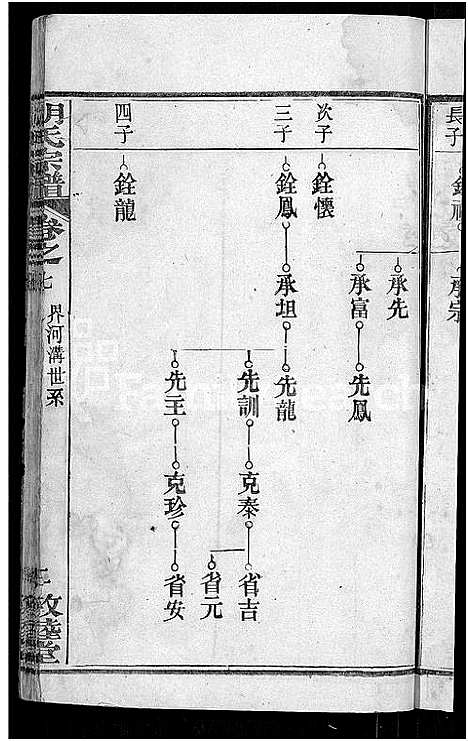 長子
承宗
承先
承富
先鳳
次子
銓懷
三子
銓鳳
承坦
先龍
先訓
克泰
省吉
省元
先主
克珍
省安
四子
銓龍
胡氏宗譜
卷之七
界河溝世系
敦睦堂